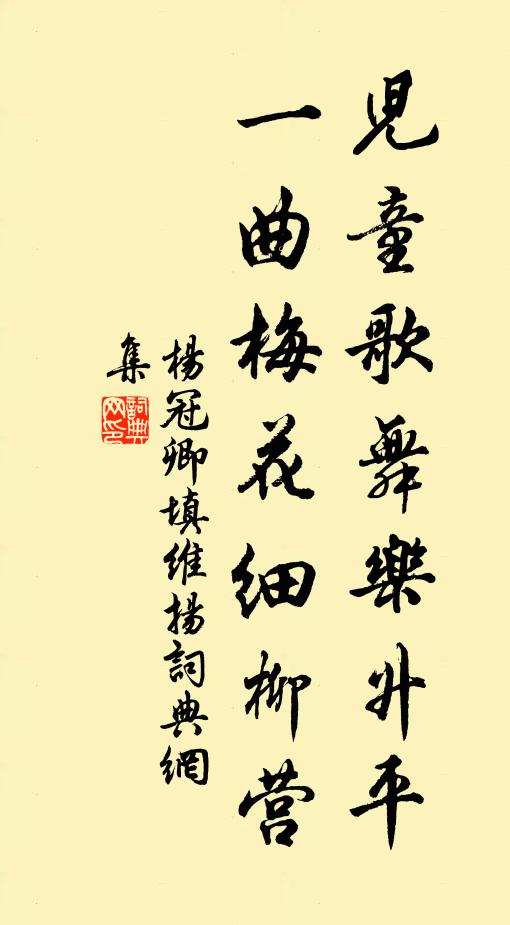 兒童歌舞樂升平
一曲梅花細柳营
楊冠卿填維揚詞典網
集
詞典網印